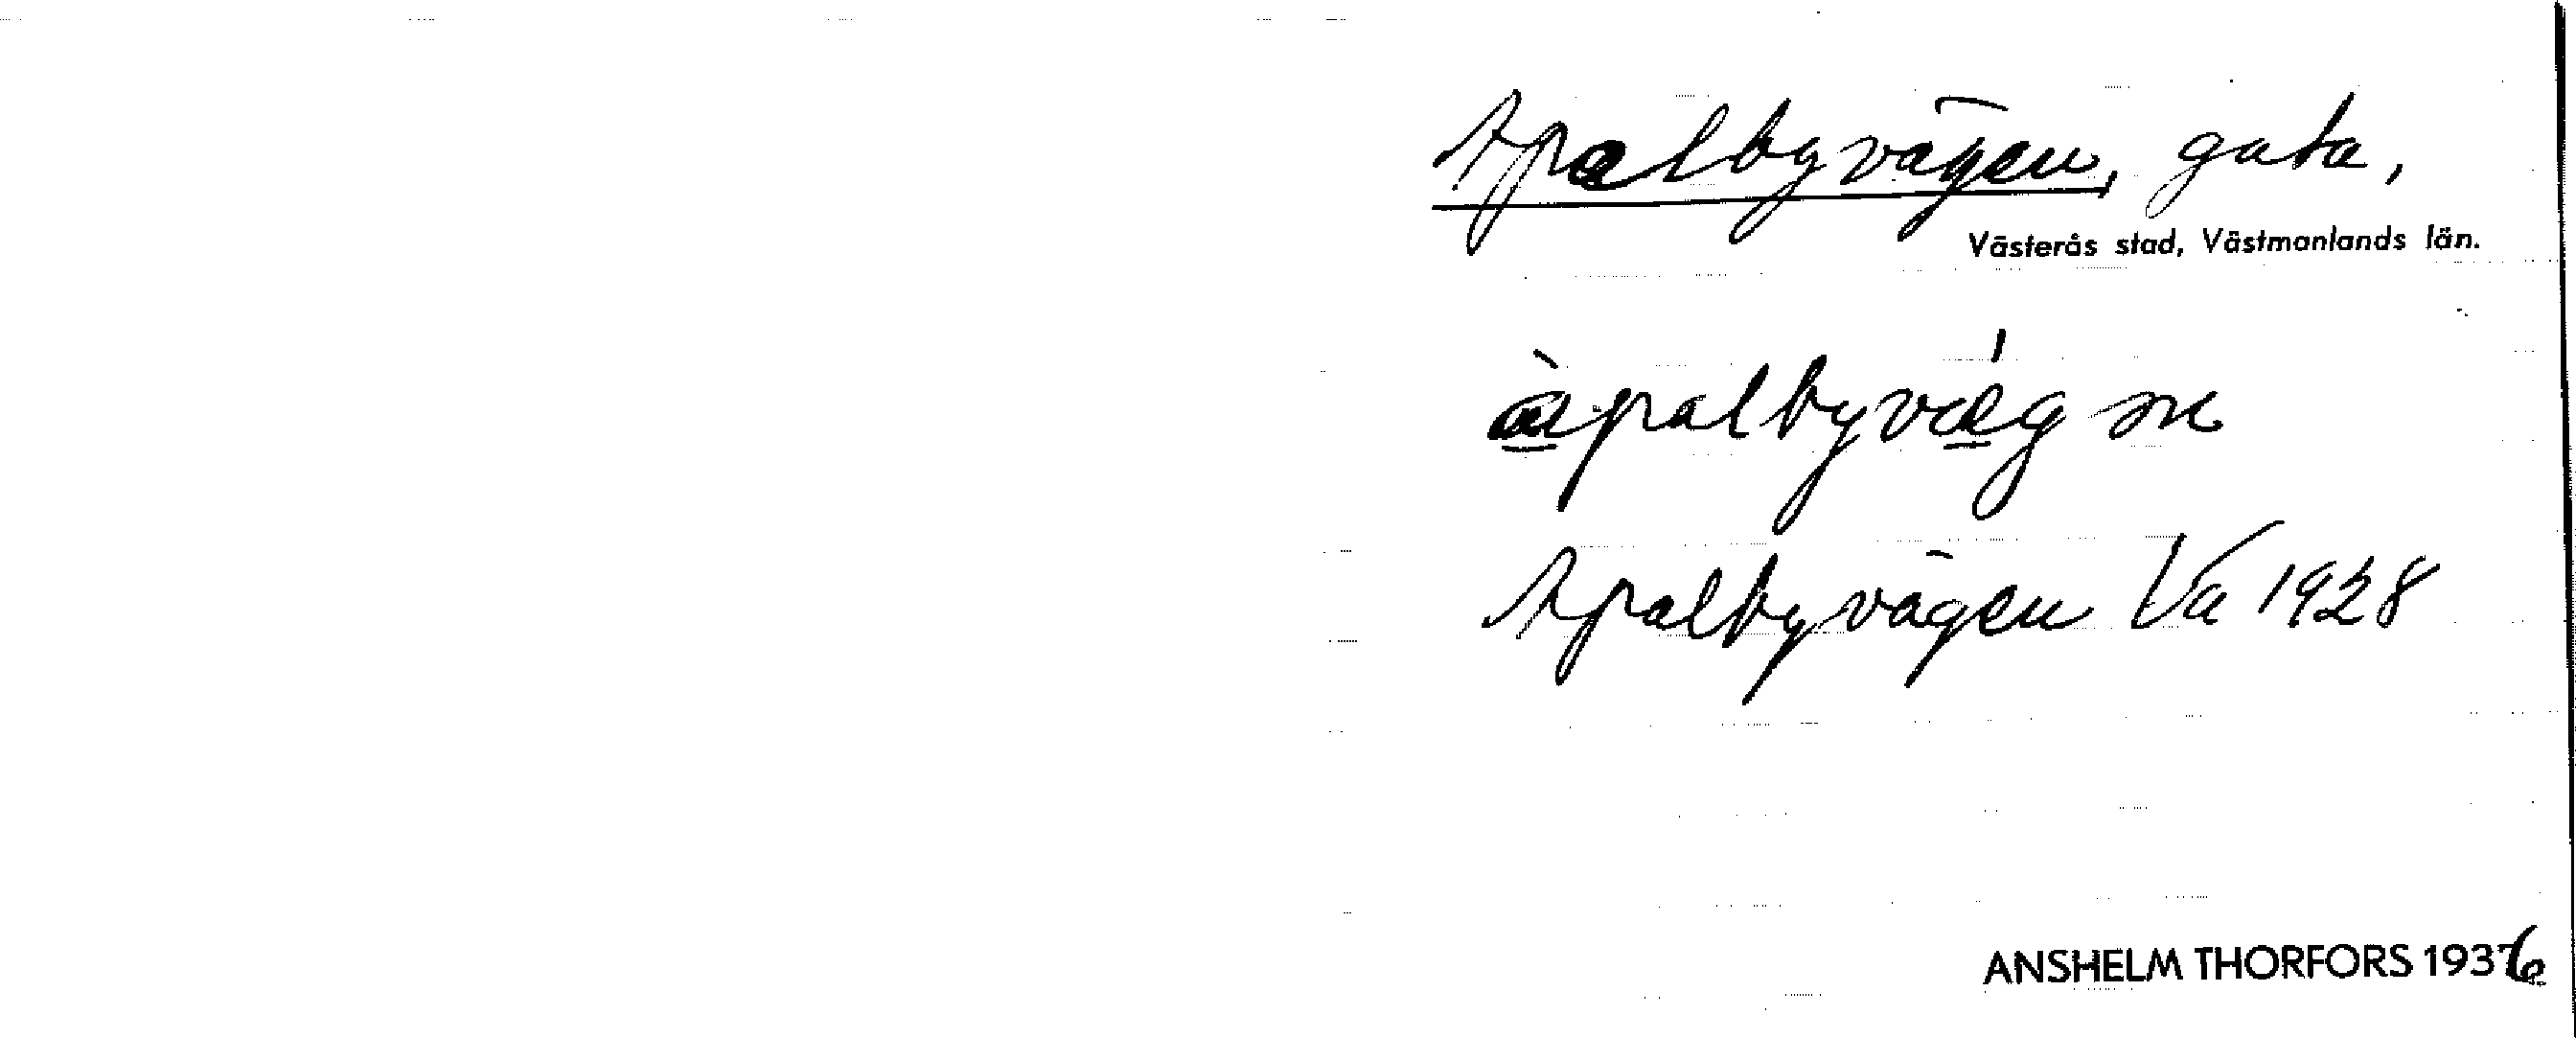 Apalbyvägen, gata,
Västerås stad, Västmanlands län.
àpalbyvǽgn
Apalbyvägen Va 1928
ANSHELM THORFORS 1936